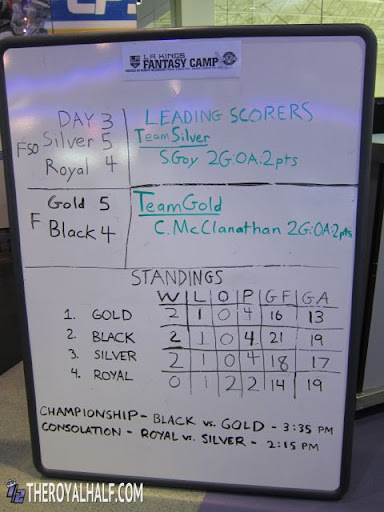 LA KINGS
FANTASY CAMP
DAY 3
FSO Silver 5
Royal 4
LEADING SCORERS
TeamSilver
S.Goy 2G:0A:2pts
F Gold 5
Black 4
TeamGold
C. McClanathan 2G:0A:2pts
STANDINGS
W L O P GF GA
1. GOLD 2 1 0 4 16 13
2. BLACK 2 1 0 4 21 19
3. SILVER 2 1 0 4 18 17
4. ROYAL 0 1 2 2 14 19
CHAMPIONSHIP - BLACK vs. GOLD - 3:35 PM
CONSOLATION - ROYAL vs. SILVER - 2:15 PM
THEROYALHALF.COM